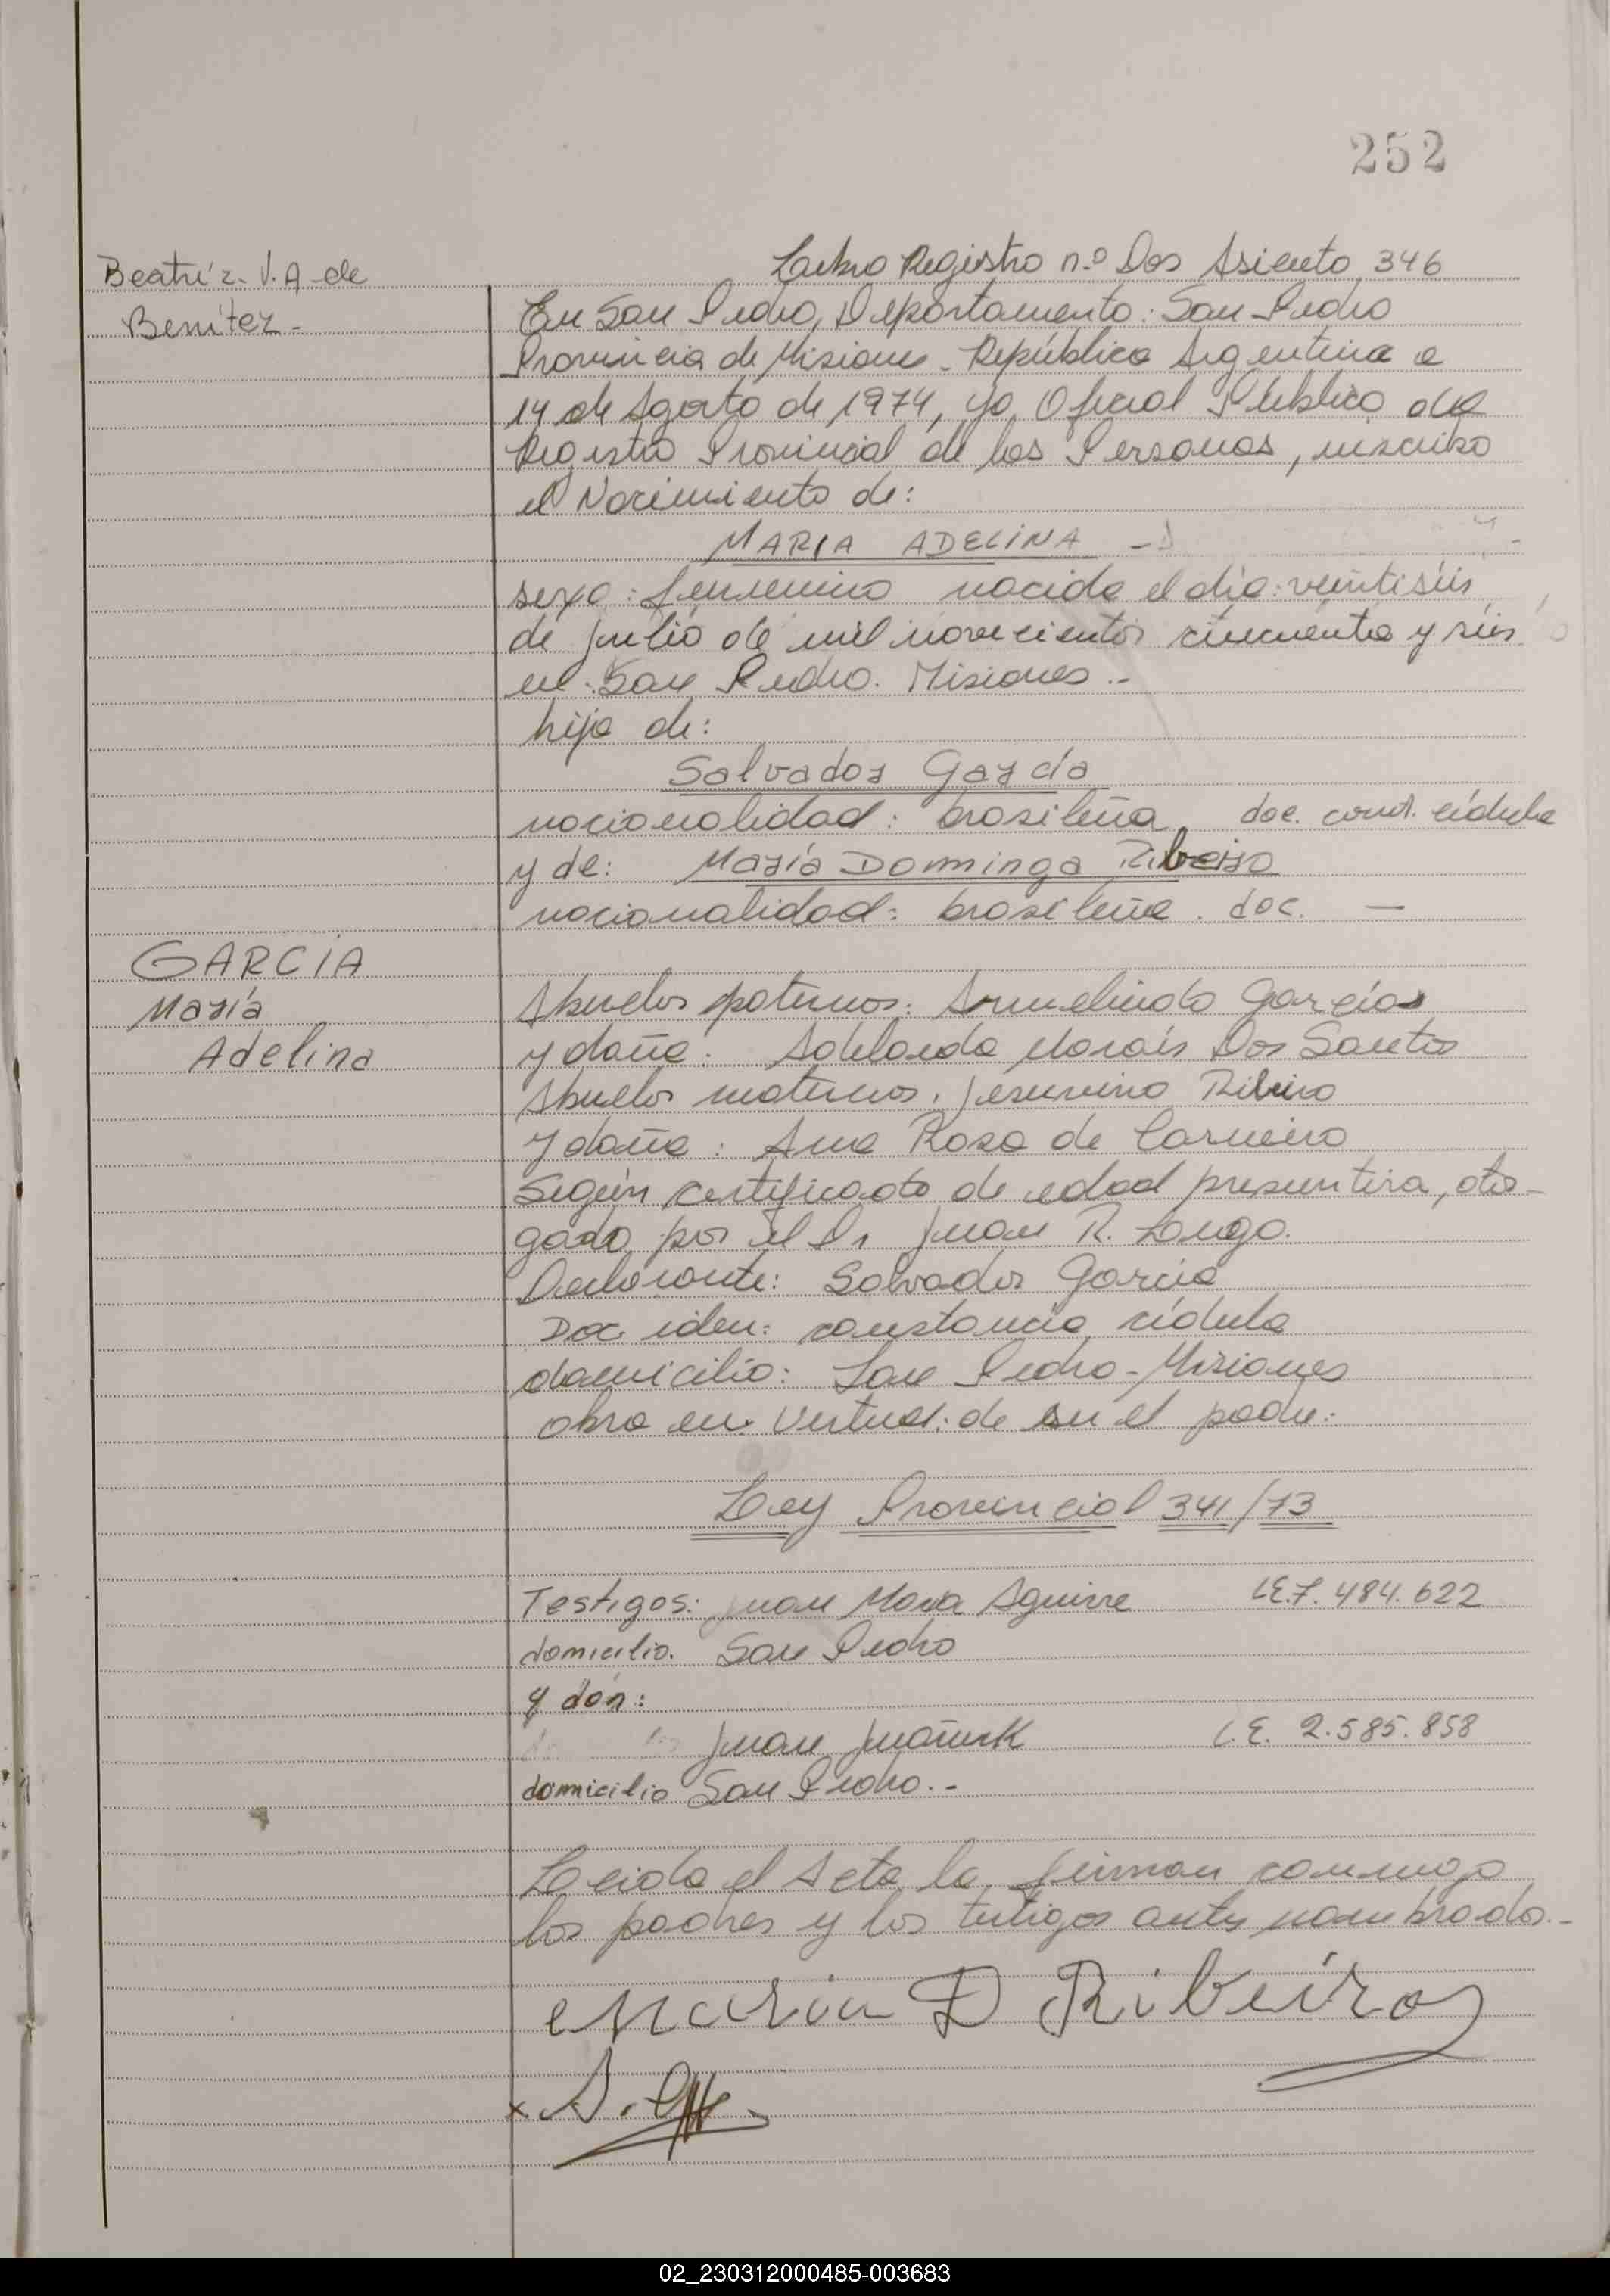 252
Beatríz. V. A. de
Benítez -
Libro Registro n.º Dos Asiento 346
En San Pedro, Departamento: San Pedro
Provincia de Misiones - República Argentina a
14 de Agosto de 1974, yo, Oficial Público del
Registro Provincial de las Personas, inscribo
el Nacimiento de:
MARIA ADELINA -
sexo: femenino nacida el día: veintiséis
de julio de mil novecientos cincuenta y séis
en: San Pedro. Misiones.-
hija de:
Salvador García
nacionalidad: brasileña doc. const. cédula
y de: María Dominga Ribeiro
nacionalidad: brasileña. doc. —
GARCÍA
María
Adelina
Abuelos paternos: Armelindo García
y doña: Adelaida Morais Dos Santos
Abuelos maternos: Jesuvino Ribeiro
y doña: Ana Rosa de Carneiro
Según certificado de edad presuntiva, otor-
gado por el Dr Juan R. Longo.
Declarante: Salvador García
Doc. iden: constancia cédula
domicilio: San Pedro - Misiones
obra en: virtud: de ser el padre.
Ley Provincial 341/73
Testigos: Juan Aguirre L.E. 7.484.622
domicilio. San Pedro
y don:
Juan L.E. 2.585.858
domicilio San Pedro.-
Leída el Acta la firman conmigo
los padres y los testigos antes nombrados.-
Maria D Ribeiro
x
02_230312000485-003683